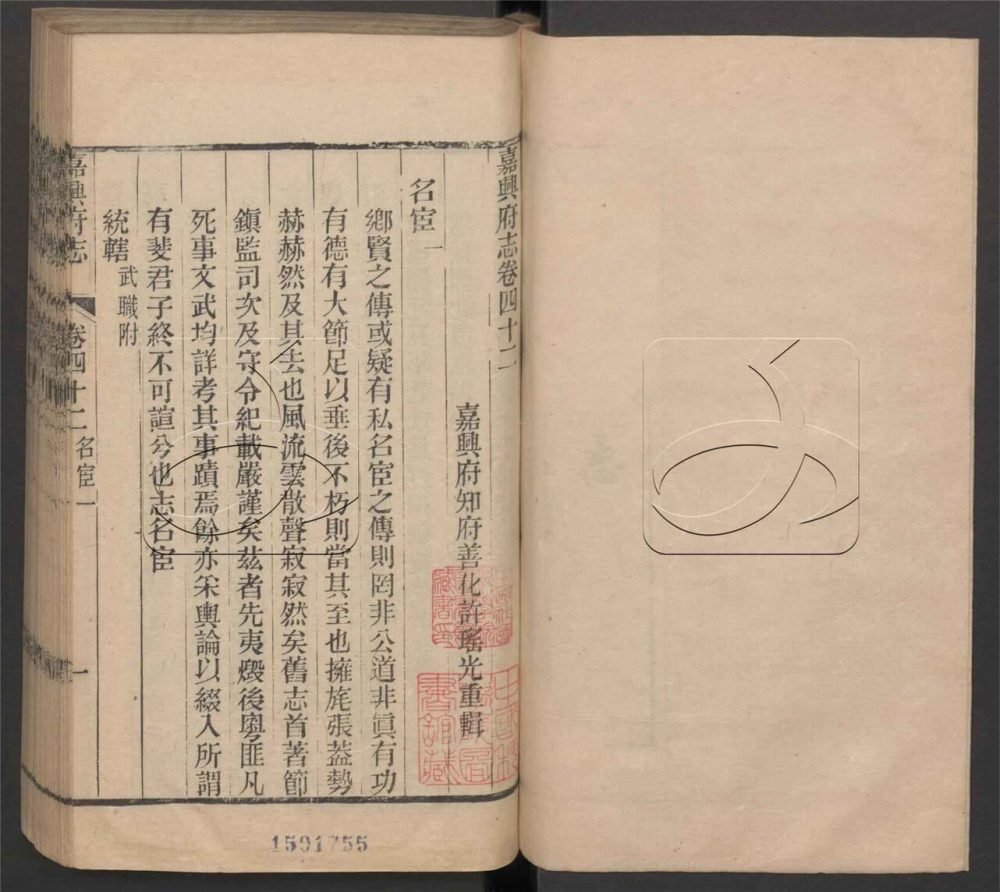 嘉興府志卷四十二
嘉興府知府善化許瑤光重輯
名宦一
鄉賢之傳或疑有私名宦之傳則罔非公道非眞有功
有德有大節足以垂後不朽則當其至也擁旄張葢勢
赫赫然及其去也風流雲散聲寂寂然矣舊志首著節
鎭監司次及守令紀載嚴謹矣茲者先夷燬後粵匪凡
死事文武均詳考其事蹟焉餘亦采輿論以綴入所謂
有斐君子終不可諠兮也志名宦
統轄 武職附
嘉興府志 卷四十二 名宦一 一
1591755